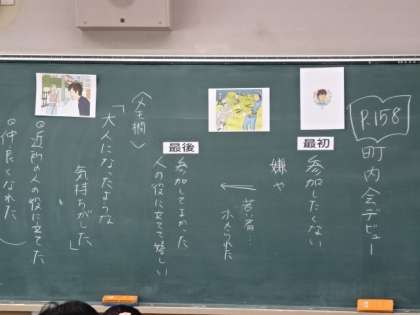 P.158
町内会デビュー
最初
参加したくない
嫌や
ホメられた
最後
参加してよかった
人の役に立てて嬉しい
「大人になったような
気持ちがした」
◎近所の人の役に立てた
◎仲良くなれた